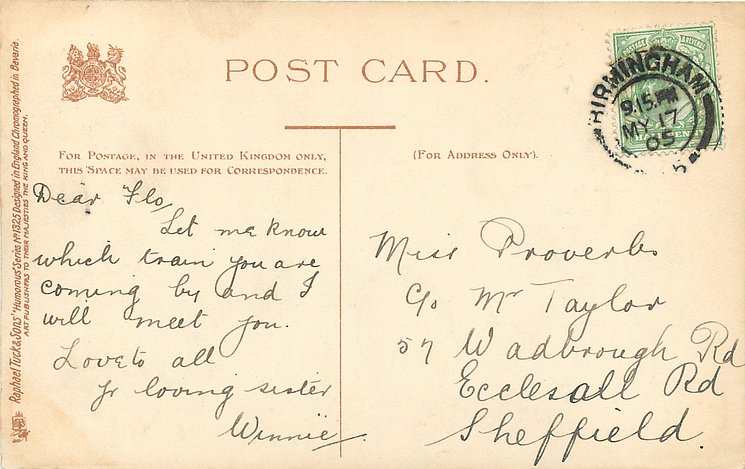 POST CARD.
FOR POSTAGE, IN THE UNITED KINGDOM ONLY,
THIS SPACE MAY BE USED FOR CORRESPONDENCE.
(FOR ADDRESS ONLY).
Raphael Tuck & Sons' "Humorous" Series No 1325 Designed in England Chromographed in Bavaria.
ART PUBLISHERS TO THEIR MAJESTIES THE KING AND QUEEN.
Dear Flo,
Let me know
which train you are
coming by and I
will meet you.
Love to all
Yr loving sister
Winnie.
Miss Proverbs
C/o Mr Taylor
57 Wadbrough Rd
Ecclesall Rd
Sheffield.
POSTAGE & REVENUE
BIRMINGHAM
9.15 PM
MY 17
05